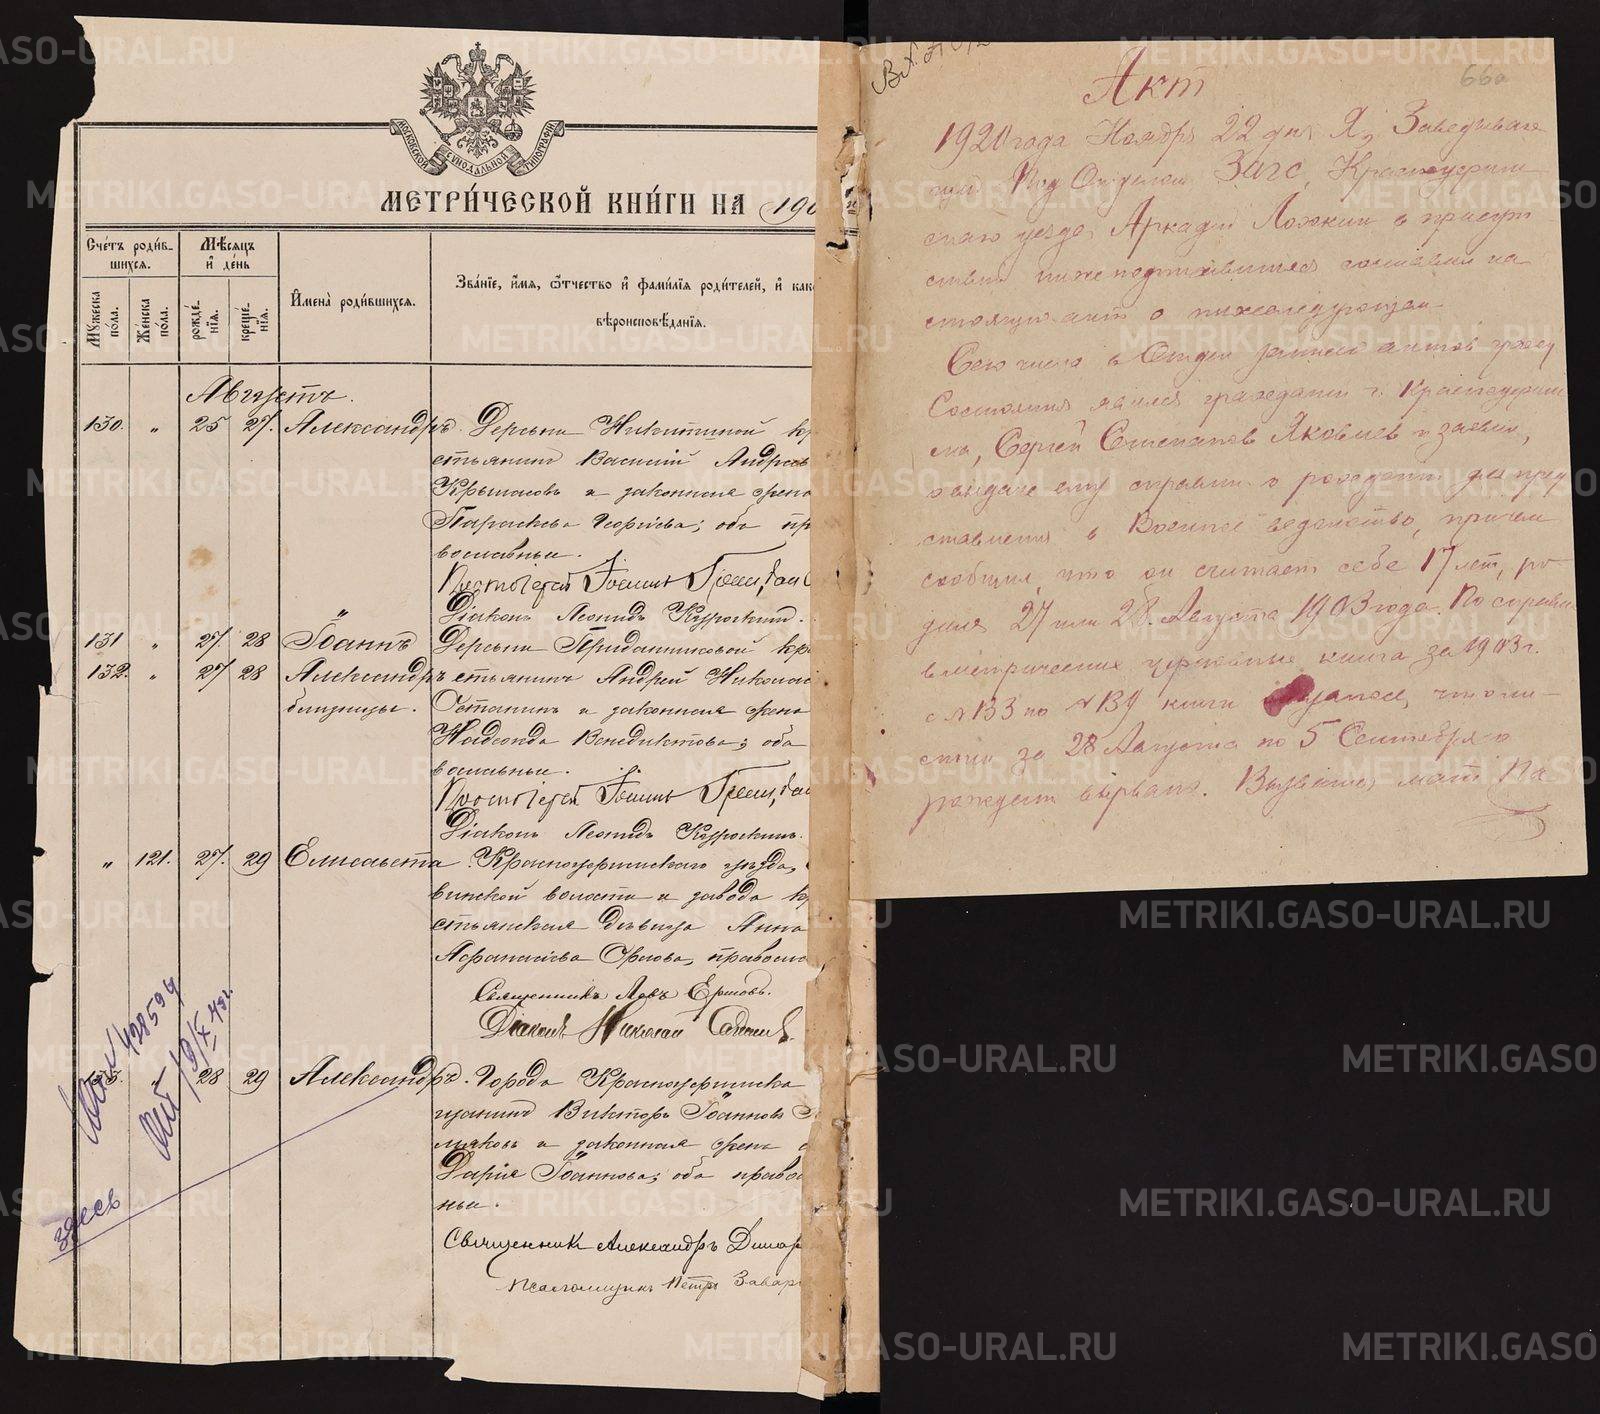 МОСКОВСКОЙ СѴНОДАЛЬНОЙ ТИПОГРАФІИ
МЕТРИ́ЧЕСКОЙ КНИ́ГИ НА 190
Сче́тъ роди́в-
шихся.
Му́жеска
по́ла.
Же́нска
по́ла.
Мѣ́сяцъ
и҆ де́нь
рожде́-
нїѧ.
креще́-
нїѧ.
И҆мена̀ роди́вшихся.
Зва́нїе, и҆́мя, ѻ҆́тчество и҆ фами́лїя роди́телей, и҆ како
вѣроисповѣ́данїѧ.
Августъ.
130. „ 25 27. Александръ. Деревни Никитиной кр
естьянинъ Василій Андреевъ
Крысасовъ и законная жена
Параскева Георгіева; оба пр
вославные.
Протоіерей Іоаннъ
Діаконъ Леонидъ Куроскинъ.
131 „ 27. 28 Іоаннъ Деревни Приданниковой кре
132. „ 27 28 Александръ
близнецы.
естьянинъ Андрей Николаев
Останинъ и законная жена
Надежда Венедиктова; оба
вославные.
Протоіерей Іоаннъ
Діаконъ Леонидъ Куроскинъ.
„ 121. 27. 29 Елисавета. Красноуфимскаго уѣзда,
винской волости и завода кр
естьянская дѣвица Анна
Афанасіева Орлова, правосла
Священникъ Левъ Ершовъ.
Діаконъ Николай
28 29 Александръ. Города Красноуфимска
щанинъ Викторъ Іоанновъ
мяковъ и законная жена
Дарія Іоаннова; оба правос
ные.
Священникъ Александръ
Псаломщикъ Петръ Завар
здесь
66а
Акт
1920 года Ноября 22 дня Я, Заведываю
щий Под Отделом Загс, Красноуфим
скаго уезда, Аркадий Ложкин в присут
ствии нижеподписавшихся составил на
стоящий акт о нижеследующем
Сего числа в Отдел записи актов граж
Состояния явился гражданин г. Красноуфим
ска, Сергей Степанов Яковлев и заявил,
о выдаче ему справки о рождении для пред
ставления в Военное ведомство, причем
сообщил, что он считает себе 17 лет, ро
дился 27 или 28 Августа 1903 года. По справке
в метрических церковных книга за 1903 г.
с № 133 по № 139 книги что ли
сты за 28 Августа по 5 Сентября о
рождении вырваны. Вызвать мать